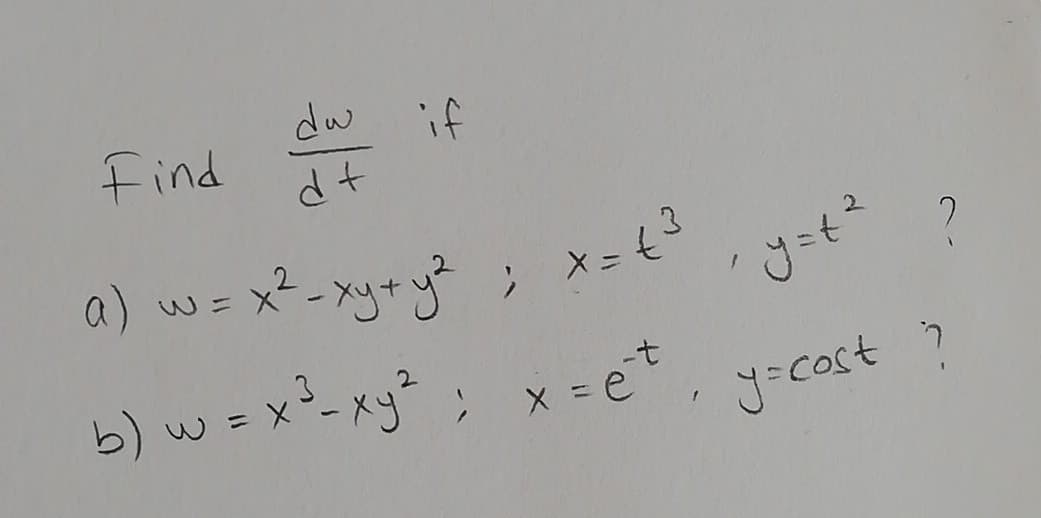 Find dw/dt if
a) w = x² - xy + y² ; x = t³ , y = t² ?
b) w = x³ - xy² ; x = e⁻ᵗ , y = cost ?